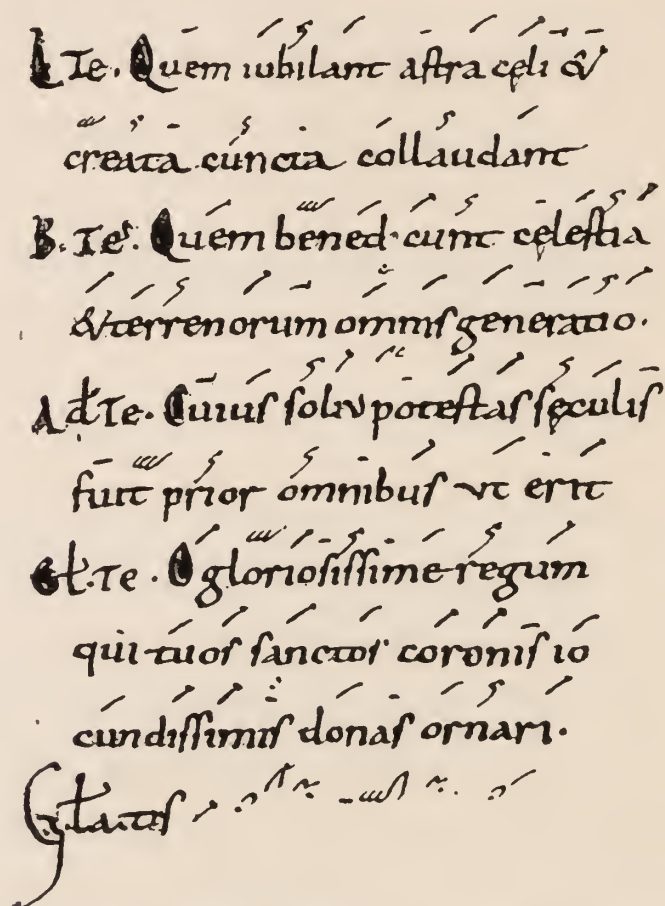 L Te. Quem iubilant astra cęli &
creata cuncta collaudant
B. Te. Quem bened. cunt cęlestia
& terrenorum omnis generatio.
Ad. Te. Cuius soli potestas sęculis
fuit prior omnibus ut erit
Gł. Te. O gloriosissime regum
qui tuos sanctos coronis io
cundissimis donas ornari.